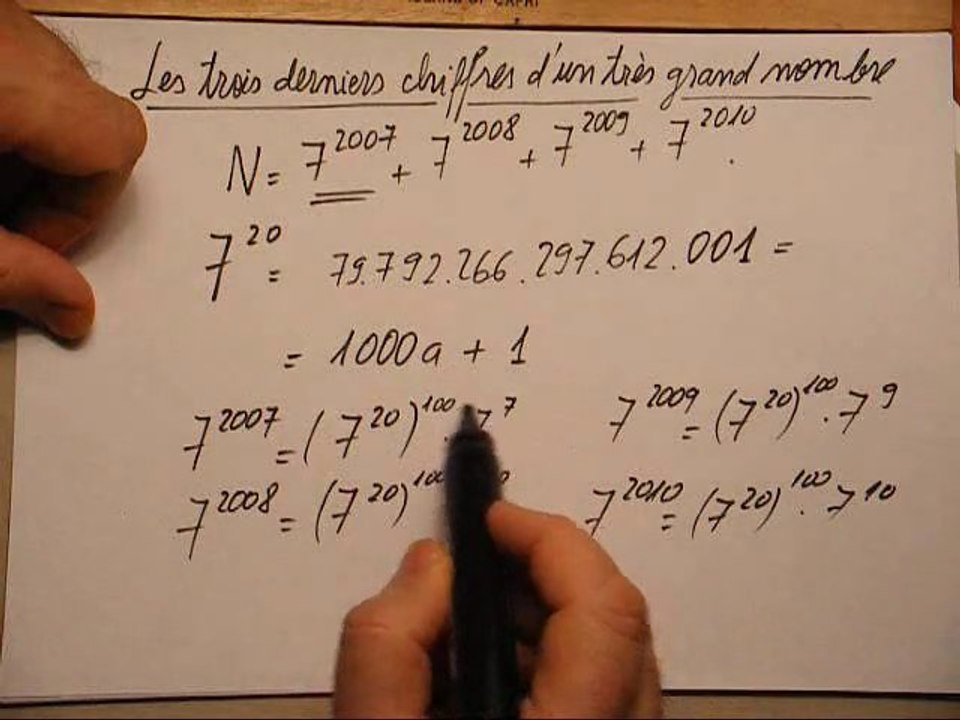 Les trois derniers chiffres d'un très grand nombre
N = 7^2007 + 7^2008 + 7^2009 + 7^2010.
7^20 = 79.792.266.297.612.001 =
= 1000a + 1
7^2007 = (7^20)^100 . 7^7
7^2009 = (7^20)^100 . 7^9
7^2008 = (7^20)^100
7^2010 = (7^20)^100 . 7^10